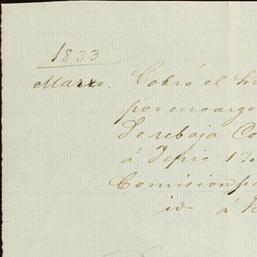 1833
Marzo. Cobró el
por encargo
Se rebaja Co
á Tepic 17
Comision pa
id á